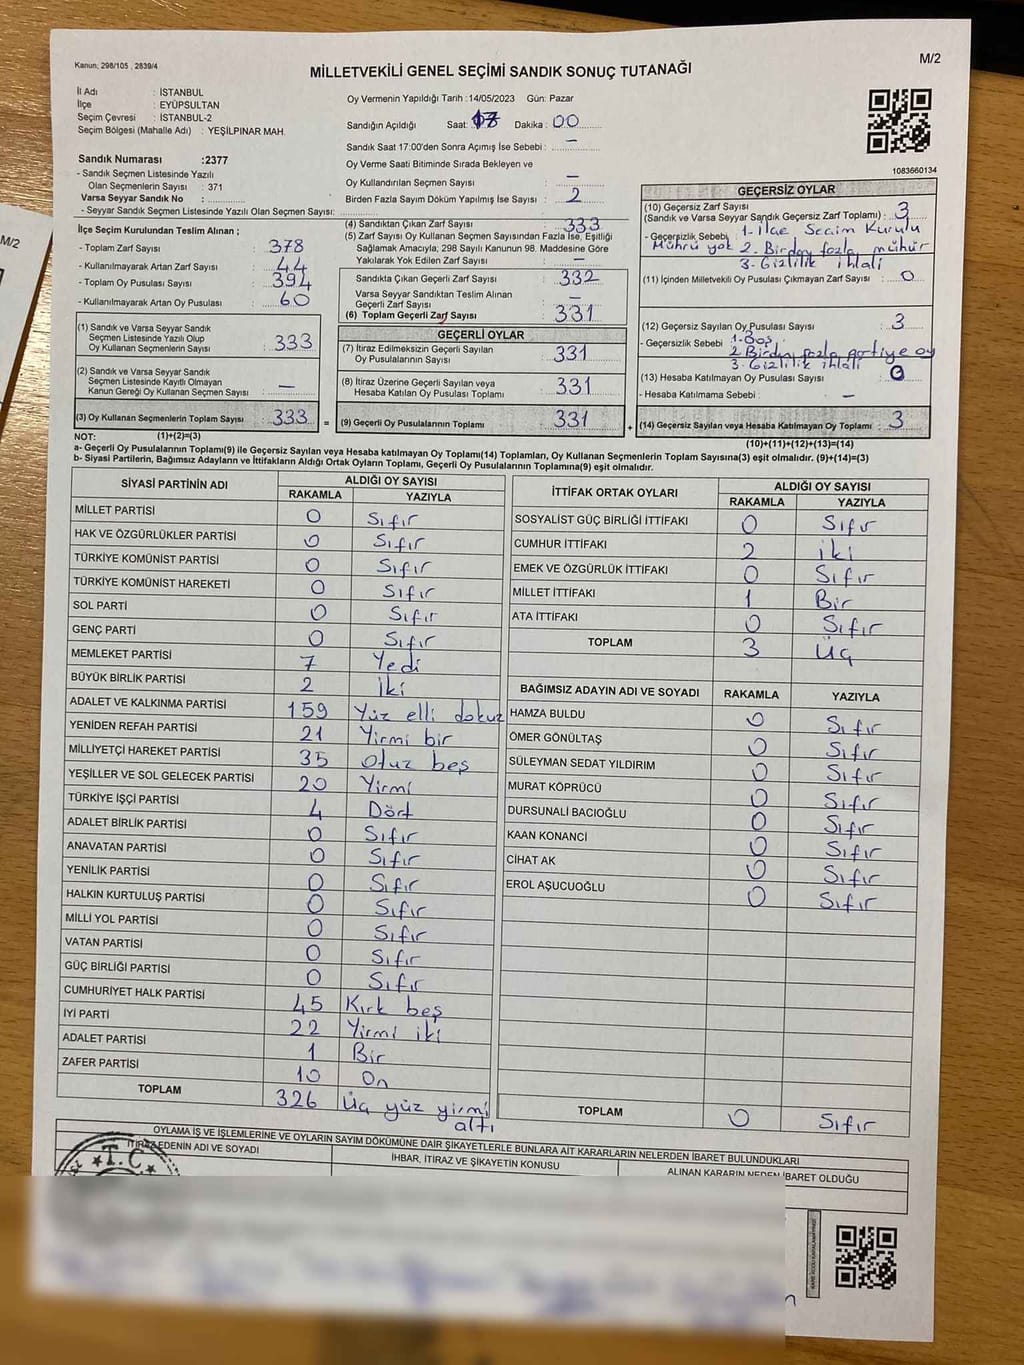 Kanun; 298/105 , 2839/4
M/2
MİLLETVEKİLİ GENEL SEÇİMİ SANDIK SONUÇ TUTANAĞI
İl Adı : İSTANBUL
İlçe : EYÜPSULTAN
Seçim Çevresi : İSTANBUL-2
Seçim Bölgesi (Mahalle Adı) : YEŞİLPINAR MAH.
Sandık Numarası :2377
- Sandık Seçmen Listesinde Yazılı
Olan Seçmenlerin Sayısı : 371
Varsa Seyyar Sandık No :
- Seyyar Sandık Seçmen Listesinde Yazılı Olan Seçmen Sayısı:
İlçe Seçim Kurulundan Teslim Alınan ;
- Toplam Zarf Sayısı : 378
- Kullanılmayarak Artan Zarf Sayısı : 44
- Toplam Oy Pusulası Sayısı : 394
- Kullanılmayarak Artan Oy Pusulası : 60
(1) Sandık ve Varsa Seyyar Sandık
Seçmen Listesinde Yazılı Olup
Oy Kullanan Seçmenlerin Sayısı : 333
(2) Sandık ve Varsa Seyyar Sandık
Seçmen Listesinde Kayıtlı Olmayan
Kanun Gereği Oy Kullanan Seçmen Sayısı : —
(3) Oy Kullanan Seçmenlerin Toplam Sayısı : 333 =
Oy Vermenin Yapıldığı Tarih :14/05/2023 Gün: Pazar
Sandığın Açıldığı Saat: 17 Dakika : 00
Sandık Saat 17:00'den Sonra Açımış İse Sebebi : —
Oy Verme Saati Bitiminde Sırada Bekleyen ve
Oy Kullandırılan Seçmen Sayısı : —
Birden Fazla Sayım Döküm Yapılmış İse Sayısı : 2
(4) Sandıktan Çıkan Zarf Sayısı : 333
(5) Zarf Sayısı Oy Kullanan Seçmen Sayısından Fazla İse, Eşitliği
Sağlamak Amacıyla, 298 Sayılı Kanunun 98. Maddesine Göre
Yakılarak Yok Edilen Zarf Sayısı : —
Sandıkta Çıkan Geçerli Zarf Sayısı : 332
Varsa Seyyar Sandıktan Teslim Alınan
Geçerli Zarf Sayısı : —
(6) Toplam Geçerli Zarf Sayısı : 331
GEÇERLİ OYLAR
(7) İtiraz Edilmeksizin Geçerli Sayılan
Oy Pusulalarının Sayısı : 331
(8) İtiraz Üzerine Geçerli Sayılan veya
Hesaba Katılan Oy Pusulası Toplamı : 331
(9) Geçerli Oy Pusulalarının Toplamı : 331 +
1083660134
GEÇERSİZ OYLAR
(10) Geçersiz Zarf Sayısı
(Sandık ve Varsa Seyyar Sandık Geçersiz Zarf Toplamı) : 3
- Geçersizlik Sebebi : 1- İlçe Seçim Kurulu
Mührü yok 2. Birden fazla mühür
3- Gizlilik ihlali
(11) İçinden Milletvekili Oy Pusulası Çıkmayan Zarf Sayısı : 0
(12) Geçersiz Sayılan Oy Pusulası Sayısı : 3
- Geçersizlik Sebebi : 1- Boş
2 Birden fazla partiye oy
3- Gizlilik ihlali
(13) Hesaba Katılmayan Oy Pusulası Sayısı : 0
- Hesaba Katılmama Sebebi : —
(14) Geçersiz Sayılan veya Hesaba Katılmayan Oy Toplamı : 3
(10)+(11)+(12)+(13)=(14)
NOT: (1)+(2)=(3)
a- Geçerli Oy Pusulalarının Toplamı(9) ile Geçersiz Sayılan veya Hesaba katılmayan Oy Toplamı(14) Toplamları, Oy Kullanan Seçmenlerin Toplam Sayısına(3) eşit olmalıdır. (9)+(14)=(3)
b- Siyasi Partilerin, Bağımsız Adayların ve İttifakların Aldığı Ortak Oyların Toplamı, Geçerli Oy Pusulalarının Toplamına(9) eşit olmalıdır.
SİYASİ PARTİNİN ADI ALDIĞI OY SAYISI
RAKAMLA YAZIYLA
MİLLET PARTİSİ 0 Sıfır
HAK VE ÖZGÜRLÜKLER PARTİSİ 0 Sıfır
TÜRKİYE KOMÜNİST PARTİSİ 0 Sıfır
TÜRKİYE KOMÜNİST HAREKETİ 0 Sıfır
SOL PARTİ 0 Sıfır
GENÇ PARTİ 0 Sıfır
MEMLEKET PARTİSİ 7 Yedi
BÜYÜK BİRLİK PARTİSİ 2 İki
ADALET VE KALKINMA PARTİSİ 159 Yüz elli dokuz
YENİDEN REFAH PARTİSİ 21 Yirmi bir
MİLLİYETÇİ HAREKET PARTİSİ 35 Otuz beş
YEŞİLLER VE SOL GELECEK PARTİSİ 20 Yirmi
TÜRKİYE İŞÇİ PARTİSİ 4 Dört
ADALET BİRLİK PARTİSİ 0 Sıfır
ANAVATAN PARTİSİ 0 Sıfır
YENİLİK PARTİSİ 0 Sıfır
HALKIN KURTULUŞ PARTİSİ 0 Sıfır
MİLLİ YOL PARTİSİ 0 Sıfır
VATAN PARTİSİ 0 Sıfır
GÜÇ BİRLİĞİ PARTİSİ 0 Sıfır
CUMHURİYET HALK PARTİSİ 45 Kırk beş
İYİ PARTİ 22 Yirmi iki
ADALET PARTİSİ 1 Bir
ZAFER PARTİSİ 10 On
TOPLAM 326 Üç yüz yirmi
altı
İTTİFAK ORTAK OYLARI ALDIĞI OY SAYISI
RAKAMLA YAZIYLA
SOSYALİST GÜÇ BİRLİĞİ İTTİFAKI 0 Sıfır
CUMHUR İTTİFAKI 2 İki
EMEK VE ÖZGÜRLÜK İTTİFAKI 0 Sıfır
MİLLET İTTİFAKI 1 Bir
ATA İTTİFAKI 0 Sıfır
TOPLAM 3 Üç
BAĞIMSIZ ADAYIN ADI VE SOYADI RAKAMLA YAZIYLA
HAMZA BULDU 0 Sıfır
ÖMER GÖNÜLTAŞ 0 Sıfır
SÜLEYMAN SEDAT YILDIRIM 0 Sıfır
MURAT KÖPRÜCÜ 0 Sıfır
DURSUNALİ BACIOĞLU 0 Sıfır
KAAN KONANCİ 0 Sıfır
CİHAT AK 0 Sıfır
EROL AŞUCUOĞLU 0 Sıfır
TOPLAM 0 Sıfır
OYLAMA İŞ VE İŞLEMLERİNE VE OYLARIN SAYIM DÖKÜMÜNE DAİR ŞİKAYETLERLE BUNLARA AİT KARARLARIN NELERDEN İBARET BULUNDUKLARI
İTİRAZ EDENİN ADI VE SOYADI İHBAR, İTİRAZ VE ŞİKAYETİN KONUSU ALINAN KARARIN NEDEN İBARET OLDUĞU
T.C
M/2